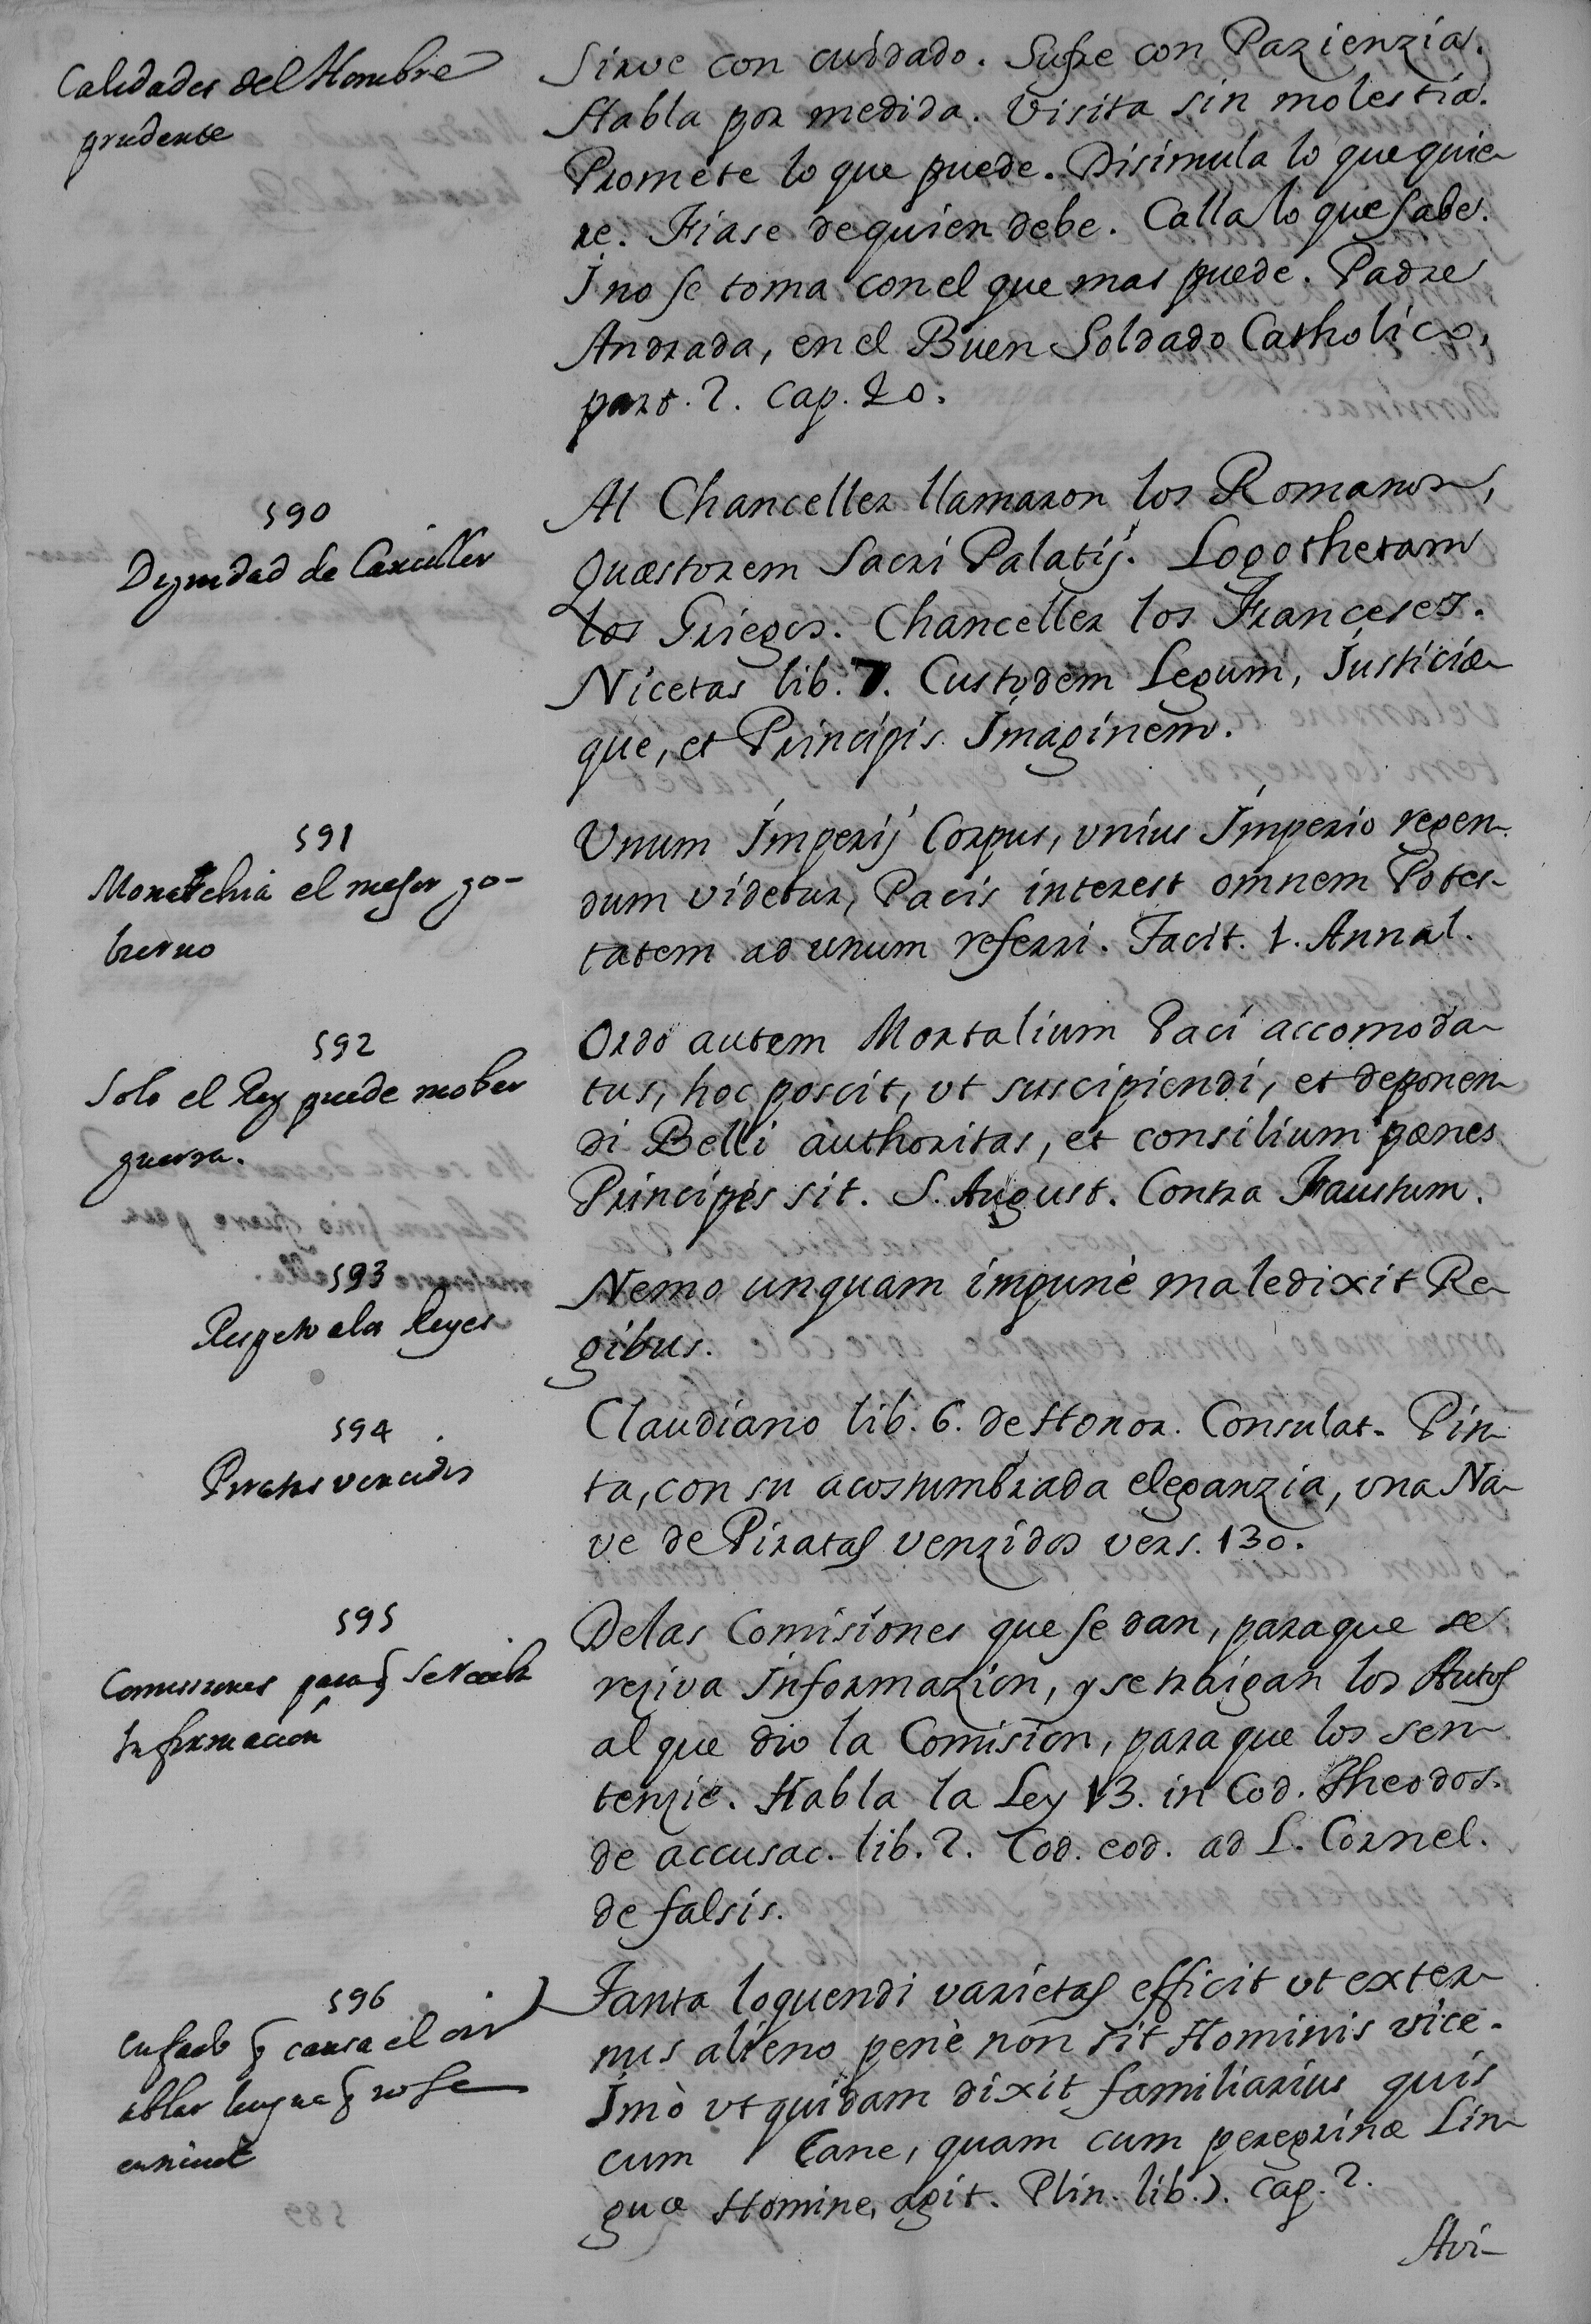 Calidades del Hombre
prudente
Sirve con cuidado. Sufre con Pazienzia.
Habla por medida. Visita sin molestia.
Promete lo que puede. Disimula lo que quie-
re. Fiase de quien debe. Calla lo que sabe.
J no se toma con el que mas puede. Padre
Andrada, en el Buen Soldado Catholico,
part. 2. cap. 20.
590
Dignidad de Canciller
Al Chanceller llamaron los Romanos,
Quæstorem Sacri Palatij. Logothetam
los Griegos. Chanceller los Franceses.
Nicetas lib. 7. Custodem Legum, Justiciæ-
que, et Principis Imaginem.
591
Monarchia el mejor go-
bierno
Vnum Imperij Corpus, vnius Imperio regen-
dum videtur, Pacis interest omnem Potes-
tatem ad unum referri. Tacit. 1. Annal.
592
Solo el Rey puede mober
guerra.
Ordo autem Mortalium Paci accomoda-
tus, hoc poscit, vt suscipiendi, et deponen-
di Belli authoritas, et consilium pœnes
Principes sit. S. August. Contra Faustum.
593
Respeto a los Reyes
Nemo unquam impunè maledixit Re-
gibus.
594
Piratas vencidos
Claudiano lib. 6. de Honor. Consulat. Pin-
ta, con su acostumbrada eleganzia, vna Na-
ve de Piratas venzidos vers. 130.
595
Comissiones para q se reciba
Informacion
De las Comisiones que se dan, para que se
reziva Informazion, y se traigan los Autos
al que dio la Comision, para que los sen-
tenzie. Habla la Ley 13. in Cod. Theodos.
de accusac. lib. 2. Cod. eod. ad L. Cornel.
de falsis.
596
Enfado q causa el oir
ablar lengua q no se
entiende
Tanta loquendi varietas efficit vt exter-
nus alieno penè non sit Hominis vice.
Imò vt quidam dixit familiarius quis
cum Cane, quam cum peregrinæ Lin-
guæ Homine, agit. Plin. lib. 7. cap. 2.
Avi-